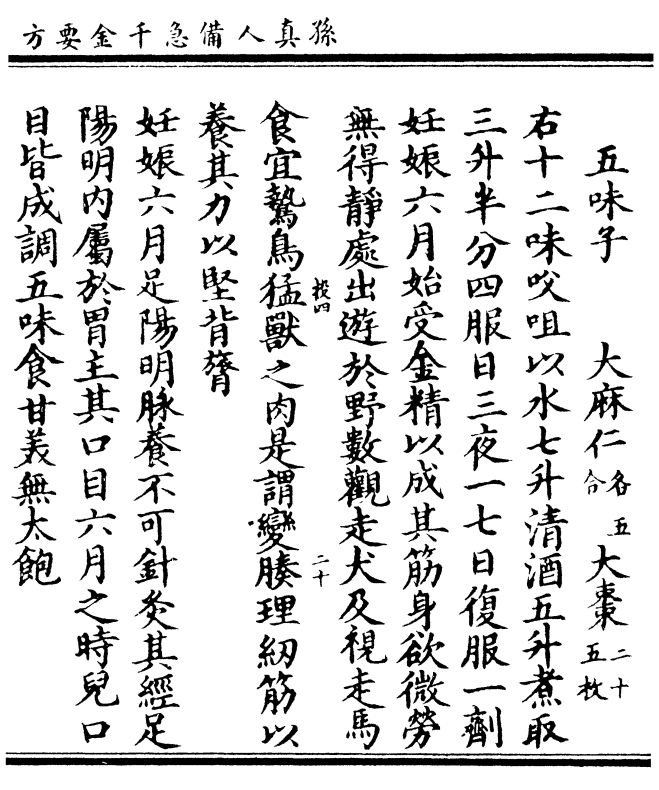 孫真人備急千金要方
五味子 大麻仁各五合 大棗二十五枚
右十二味㕮咀以水七升清酒五升煮取
三升半分四服日三夜一七日復服一劑
妊娠六月始受金精以成其筋身欲微勞
無得靜處出遊於野數觀走犬及視走馬
投四 二十
食宜鷙鳥猛獸之肉是謂變腠理紉筋以
養其力以堅背膂
妊娠六月足陽明脉養不可針灸其經足
陽明內屬於胃主其口目六月之時兒口
目皆成調五味食甘美無太飽